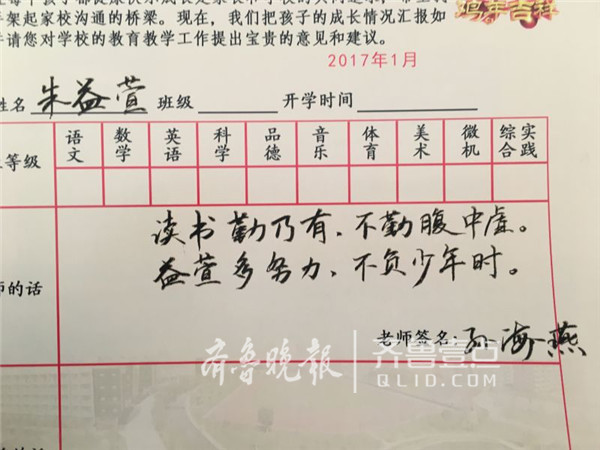 架起家校沟通的桥梁。现在，我们把孩子的成长情况汇报如
请您对学校的教育教学工作提出宝贵的意见和建议。
鸡年吉祥
2017年1月
姓名 朱益萱 班级 开学时间
等级 语文 数学 英语 科学 品德 音乐 体育 美术 微机 综合实践
读书勤乃有，不勤腹中虚。
益萱多努力，不负少年时。
师的话
老师签名：孙海燕
齐鲁晚报 齐鲁壹点
QLID.COM